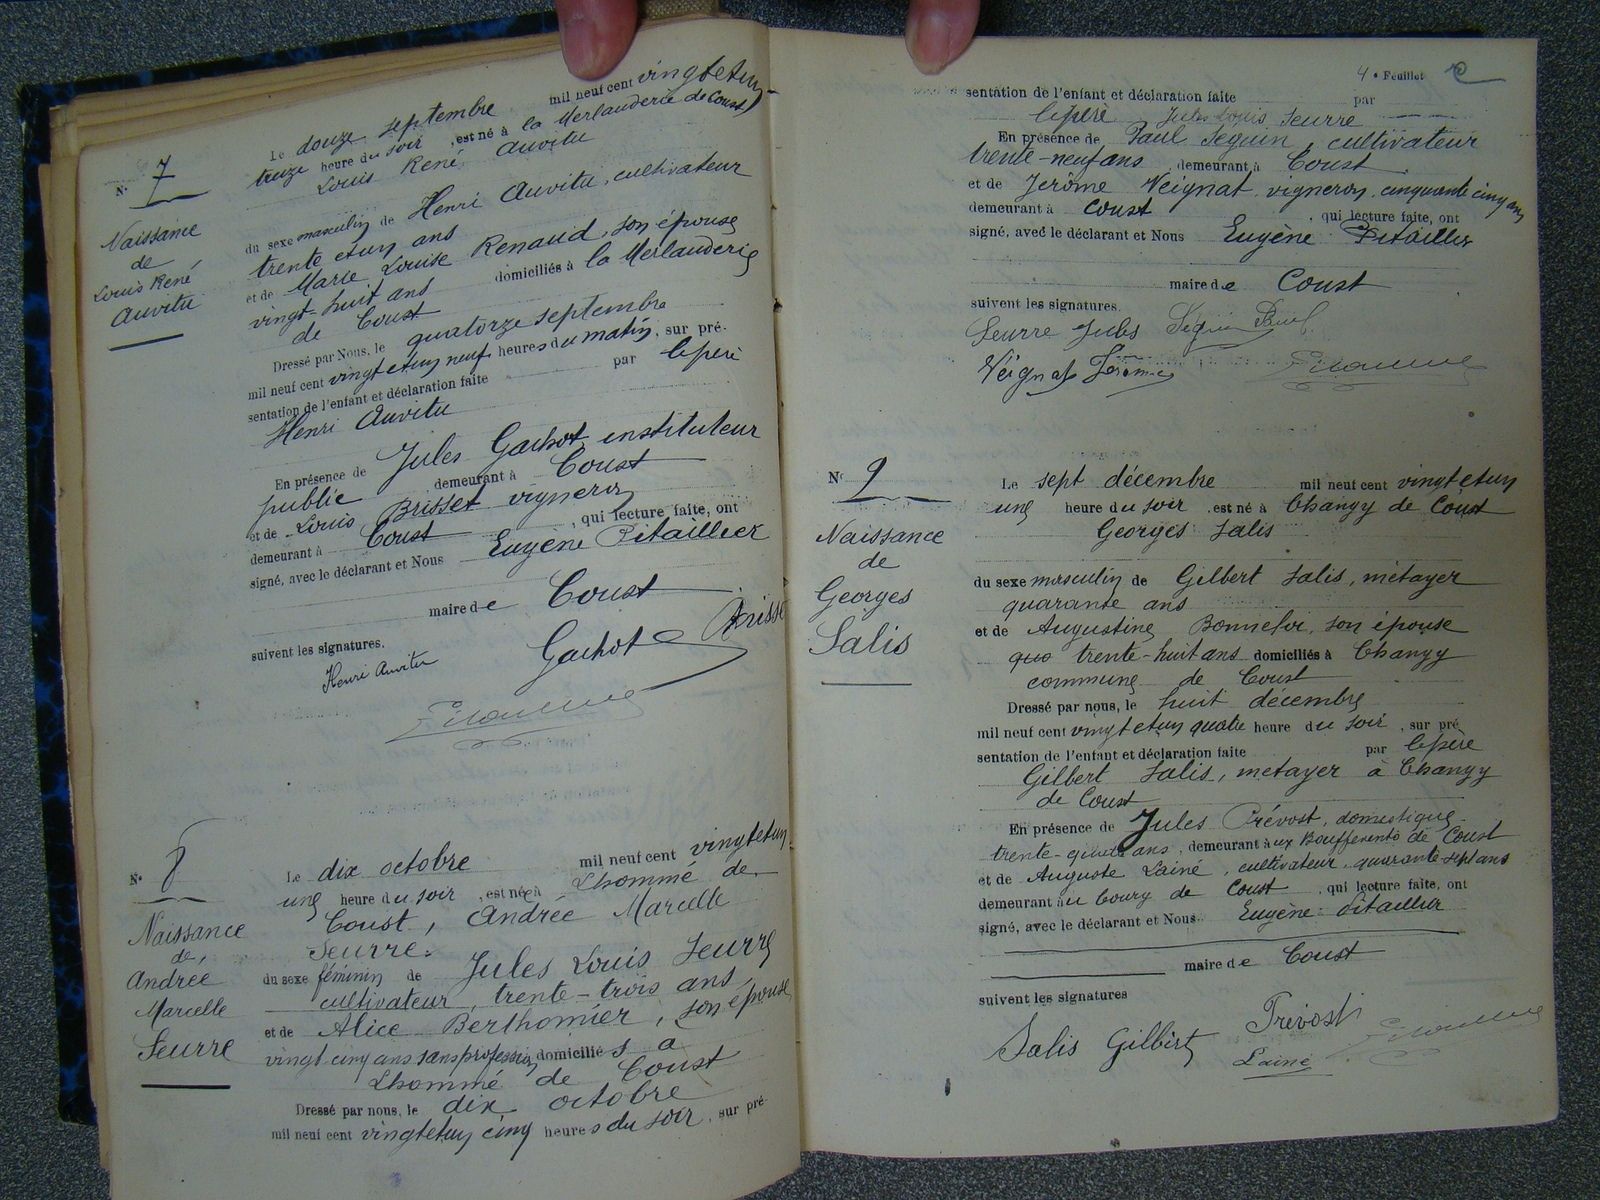 Nº 7
Naissance
de
Louis René
Auvitu
Le douze septembre mil neuf cent vingt et un
treize heure du soir, est né à la Merlauderie de Coust
Louis René Auvitu
du sexe masculin de Henri Auvitu, cultivateur
trente et un ans
et de Marie Louise Renaud, son épouse
vingt-huit ans domiciliés à la Merlauderie
de Coust
Dressé par Nous, le quatorze septembre
mil neuf cent vingt et un neuf heures du matin, sur pré-
sentation de l'enfant et déclaration faite par le père
Henri Auvitu
En présence de Jules Gachot instituteur
public demeurant à Coust
et de Louis Brisset vigneron
demeurant à Coust, qui lecture faite, ont
signé, avec le déclarant et Nous Eugène Pitaillier
maire de Coust
suivent les signatures.
Henri Auvitu Gachot Brisse
Nº 8
Naissance
de
Andrée
Marcelle
Seurre
Le dix octobre mil neuf cent vingt et un
une heure du soir, est née à Lhommé de
Coust, Andrée Marcelle
Seurre.
du sexe féminin de Jules Louis Seurre
cultivateur, trente-trois ans
et de Alice Berthomier, son épouse
vingt cinq ans sans profession domiciliés à
Lhommé de Coust
Dressé par nous, le dix octobre
mil neuf cent vingt et un cinq heures du soir, sur pré-
4e Feuillet
sentation de l'enfant et déclaration faite par
le père Jules Louis Seurre
En présence de Paul Seguin, cultivateur
trente-neuf ans demeurant à Coust
et de Jerôme Veignat vigneron, cinquante cinq ans
demeurant à Coust, qui lecture faite, ont
signé, avec le déclarant et Nous Eugène Pitaillier
maire de Coust
suivent les signatures.
Seurre Jules Séguin Paul
Veignat Jerome
Nº 9
Naissance
de
Georges
Salis
Le sept décembre mil neuf cent vingt et un
une heure du soir est né à Changy de Coust
Georges Salis
du sexe masculin de Gilbert Salis, métayer
quarante ans
et de Augustine Bonnefoi, son épouse
qua trente-huit ans domiciliés à Changy
commune de Coust
Dressé par nous, le huit décembre
mil neuf cent vingt et un quatre heure du soir, sur pré
sentation de l'enfant et déclaration faite par le père
Gilbert Salis, metayer à Changy
de Coust
En présence de Jules Prévost, domestique
trente-quatre ans, demeurant aux Boufferents de Coust
et de Auguste Lainé, cultivateur, quarante-sept ans
demeurant au Coury de Coust, qui lecture faite, ont
signé, avec le déclarant et Nous Eugène Pitaillier
maire de Coust
suivent les signatures
Salis Gilbert Prévost
Lainé